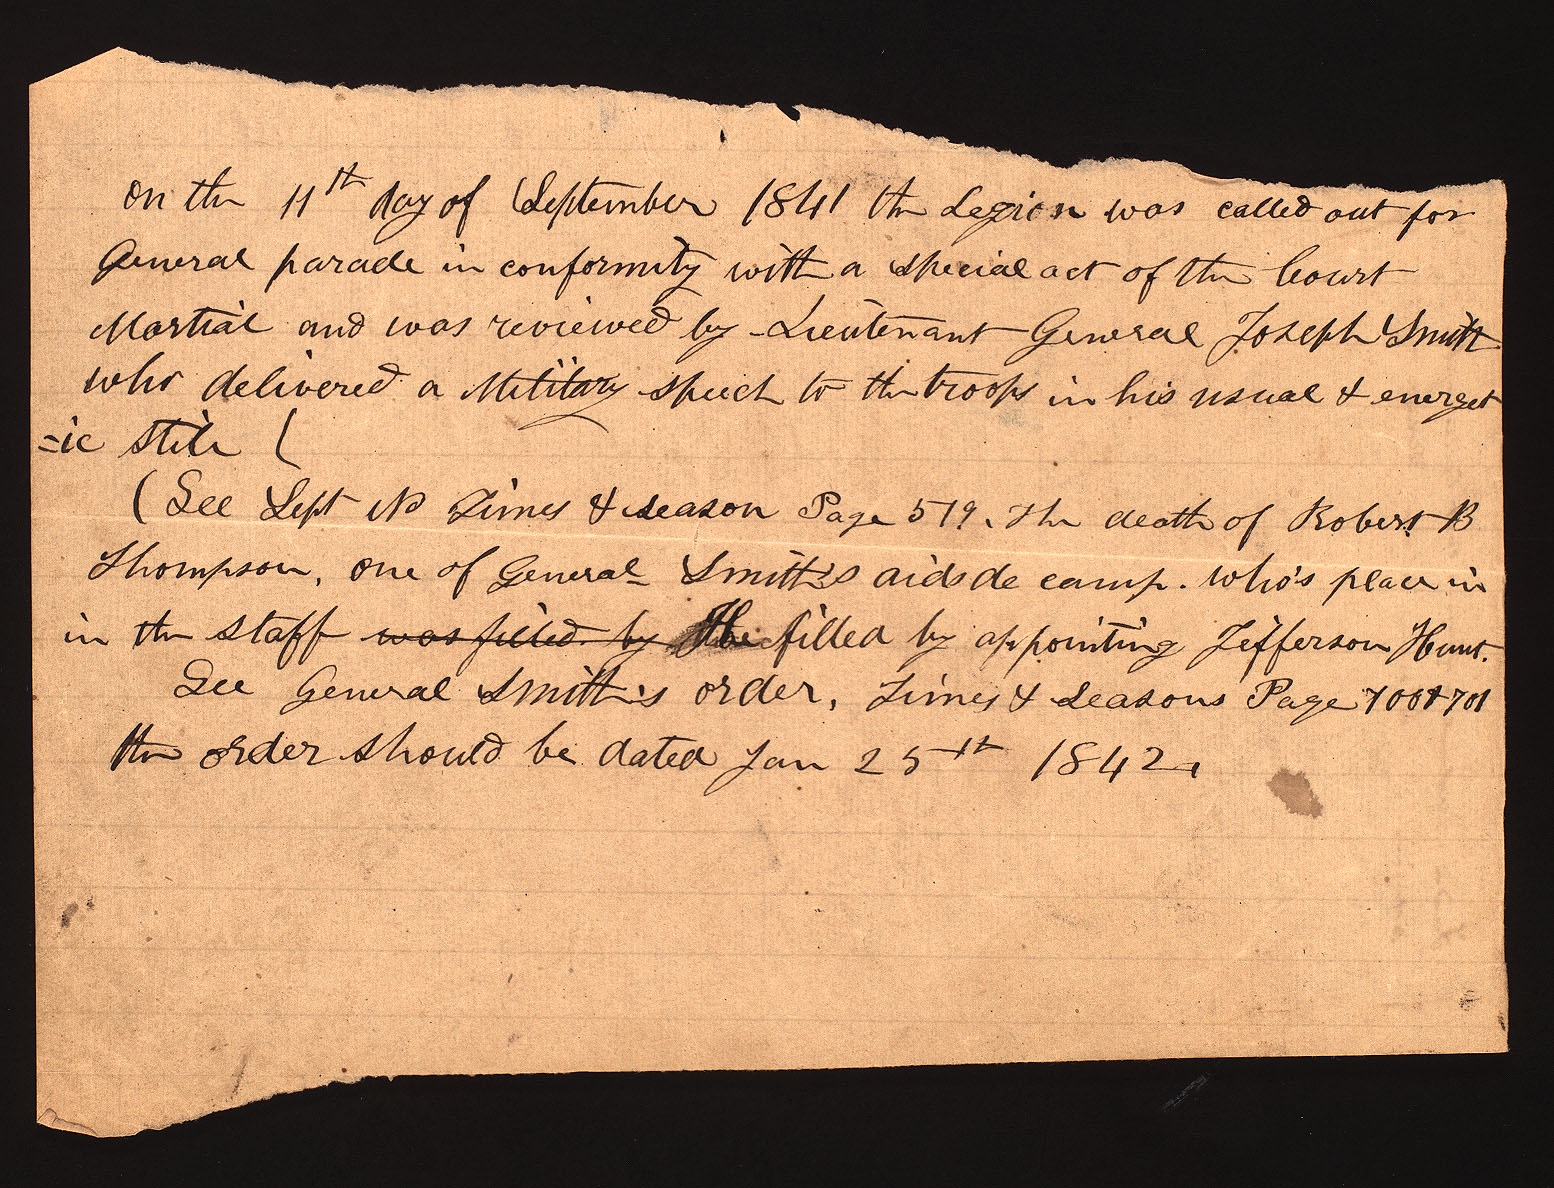 on the 11th day of September 1841 the Legion was called out for
General parade in conformity with a special act of the Court
Martial and was reviewed by Lieutenant General Joseph Smith
who delivered a Military speech to the troops in his usual & energet
=ic stile (
(See Sept No Times & Season Page 519. The death of Robert B
Thompson, one of General Smith's aids de camp. who's place in
in the staff was filled by the filled by appointing Jefferson Hunt.
See General Smith's order, Times & Seasons Page 700 & 701
the order should be dated Jan 25th 1842,